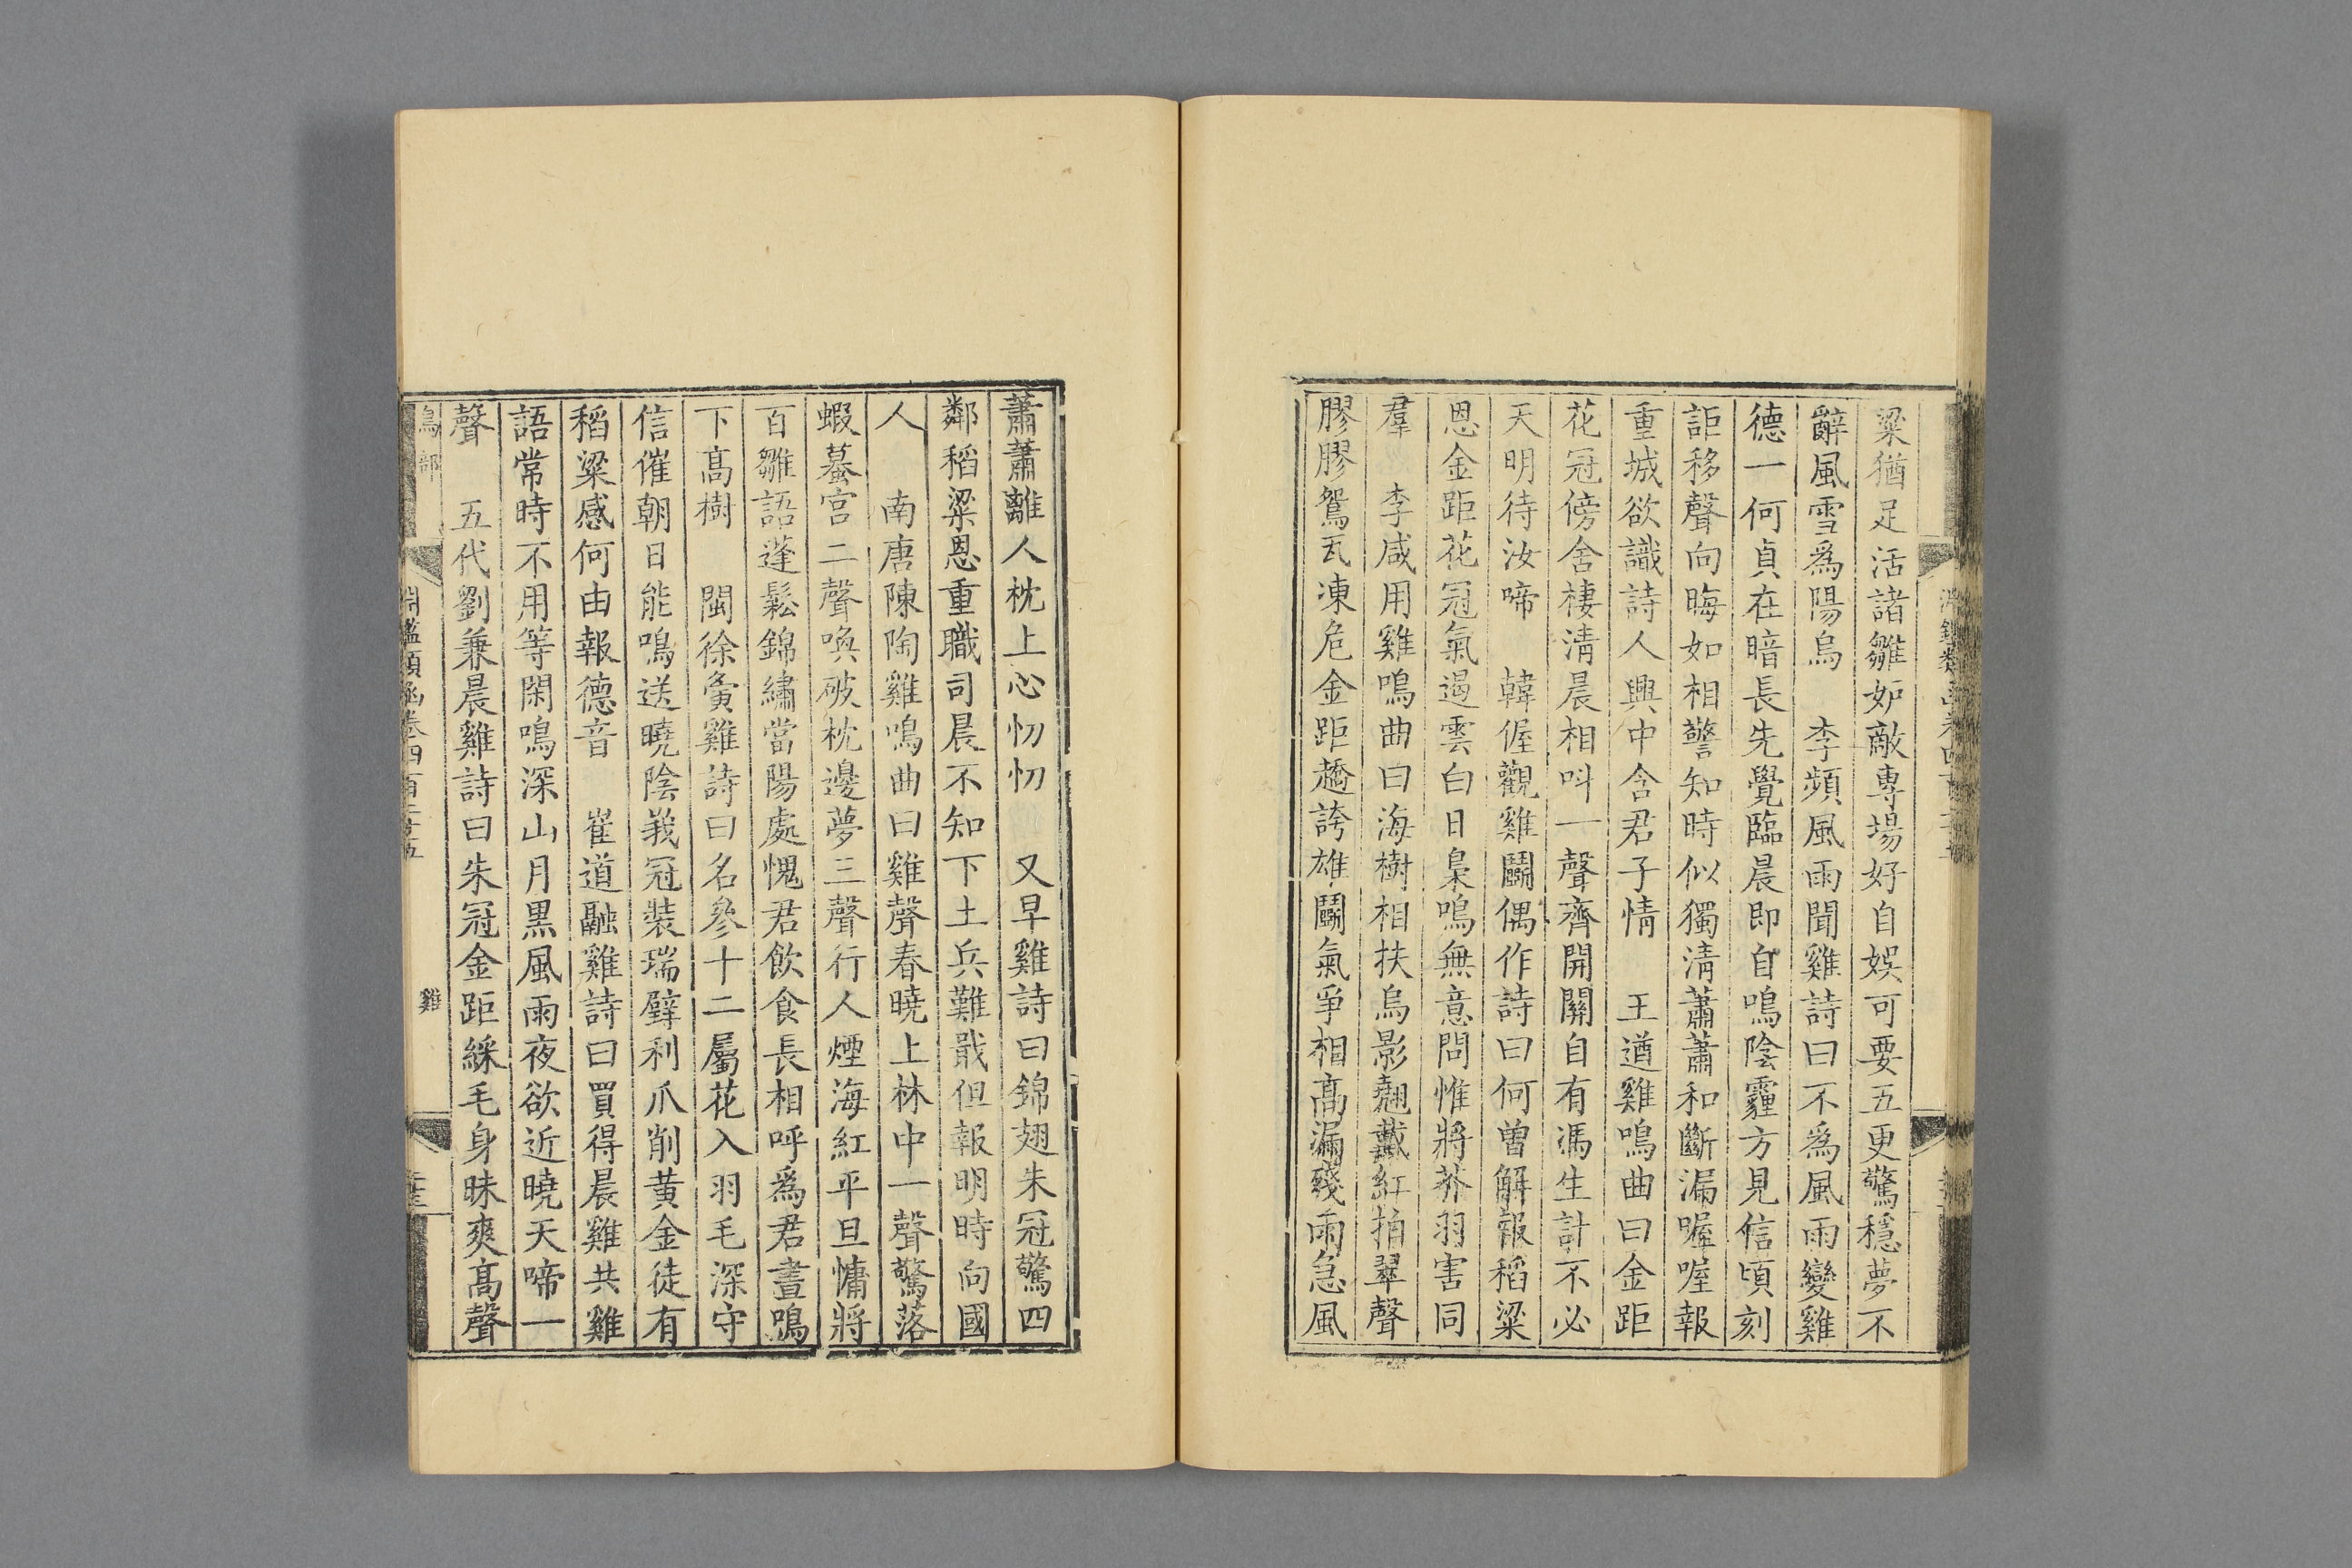 粱猶足活諸雛妒敵專場好自娛可要五更驚穩夢不
辭風雪爲陽烏　李頻風雨聞雞詩曰不爲風雨變雞
德一何貞在暗長先覺臨晨即自鳴陰霾方見信頃刻
詎移聲向晦如相警知時似獨淸蕭蕭和斷漏喔喔報
重城欲識詩人興中含君子情　王遒雞鳴曲曰金距
花冠傍舍棲淸晨相叫一聲齊開關自有馮生計不必
天明待汝啼　韓偓觀雞鬭偶作詩曰何曾解報稻粱
恩金距花冠氣遏雲白日梟鳴無意問惟將芥羽害同
羣　李咸用雞鳴曲曰海樹相扶烏影翹戴紅拍翠聲
膠膠鴛瓦凍危金距趫誇雄鬭氣爭相髙漏殘雨急風
蕭蕭離人枕上心忉忉　又早雞詩曰錦翅朱冠驚四
鄰稻粱恩重職司晨不知下土兵難戢但報明時向國
人　南唐陳陶雞鳴曲曰雞聲春曉上林中一聲驚落
蝦蟇宮二聲喚破枕邊夢三聲行人煙海紅平旦慵將
百雛語蓬鬆錦繡當陽處愧君飲食長相呼爲君晝鳴
下髙樹　閩徐夤雞詩曰名參十二屬花入羽毛深守
信催朝日能鳴送曉陰峩冠裝瑞璧利爪削黄金徒有
稻粱感何由報德音　崔道融雞詩曰買得晨雞共雞
語常時不用等閑鳴深山月黒風雨夜欲近曉天啼一
聲　五代劉兼晨雞詩曰朱冠金距綵毛身昧爽髙聲
鳥部　淵鑑類函卷四百二十五　雞